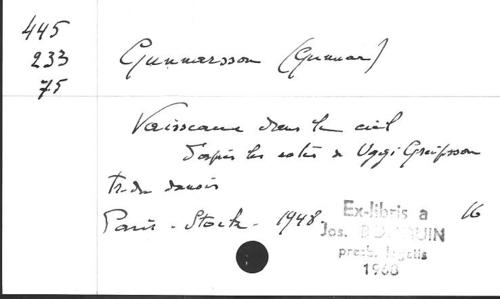 445
233
75
Gunnarsson (Gunnar)
Vaisseaux dans le ciel
d'après les notes de Uggi Greipsson
tr. du danois
Paris - Stock - 1948.
16
Ex-libris a
Jos.
presb.
1968